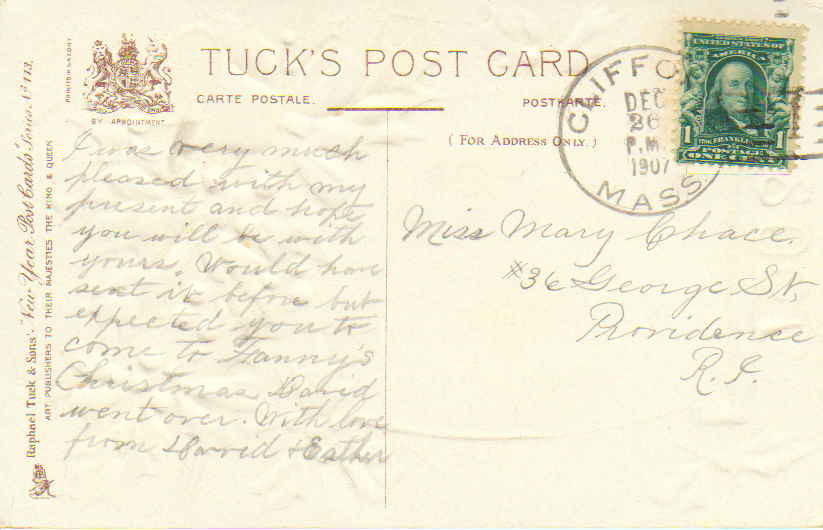 PRINTED IN SAXONY
BY APPOINTMENT.
TUCK'S POST CARD
CARTE POSTALE.
POSTKARTE.
( FOR ADDRESS ONLY. )
Raphael Tuck & Sons' "New Year Post Cards" Series No. 113.
ART PUBLISHERS TO THEIR MAJESTIES THE KING & QUEEN
I was very much
pleased with my
present and hope
you will be with
yours. Would have
sent it before but
expected you to
come to Fanny's
Christmas David
went over. With love
from David & Esther
CLIFFO
DEC
26
P.M.
1907
MASS
UNITED STATES OF
AMERICA
1 FRANKLIN 1
POSTAGE
ONE CENT
Miss Mary Chace.
#36 George St,
Providence
R.I.